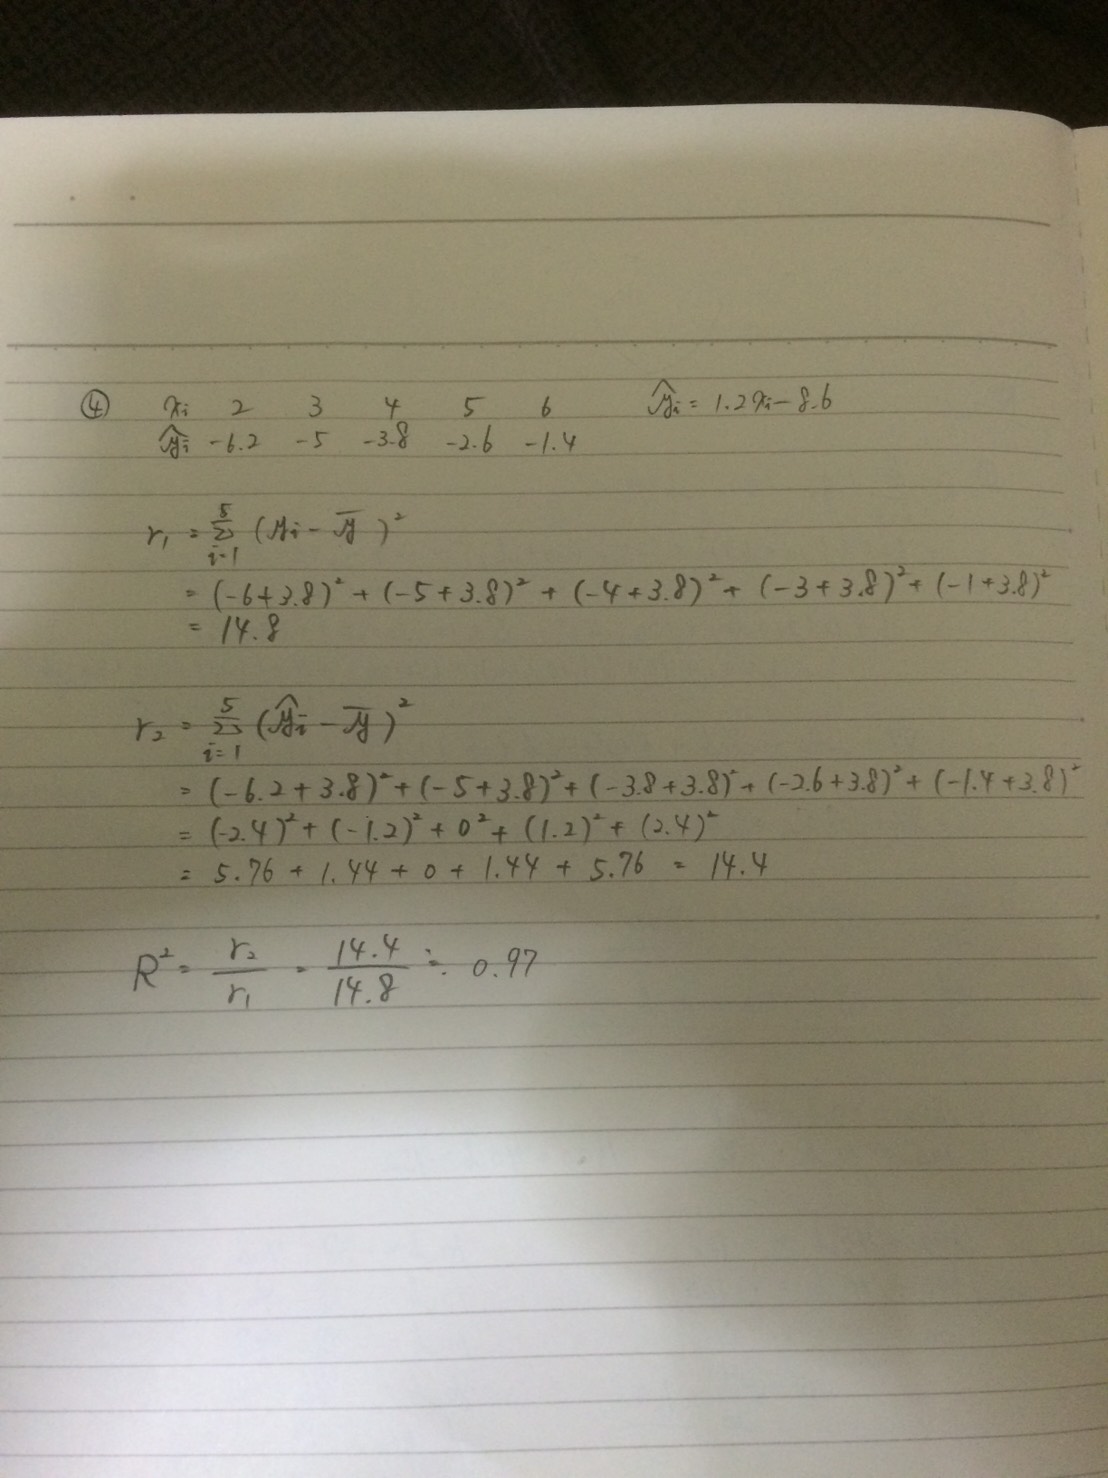 ④ xi 2 3 4 5 6 ŷi = 1.2xi − 8.6
ŷi -6.2 -5 -3.8 -2.6 -1.4
r₁ = Σ_{i=1}^{5} (yi − ȳ)²
= (-6+3.8)² + (-5+3.8)² + (-4+3.8)² + (-3+3.8)² + (-1+3.8)²
= 14.8
r₂ = Σ_{i=1}^{5} (ŷi − ȳ)²
= (-6.2+3.8)² + (-5+3.8)² + (-3.8+3.8)² + (-2.6+3.8)² + (-1.4+3.8)²
= (-2.4)² + (-1.2)² + 0² + (1.2)² + (2.4)²
= 5.76 + 1.44 + 0 + 1.44 + 5.76 = 14.4
R² = r₂/r₁ = 14.4/14.8 ≒ 0.97